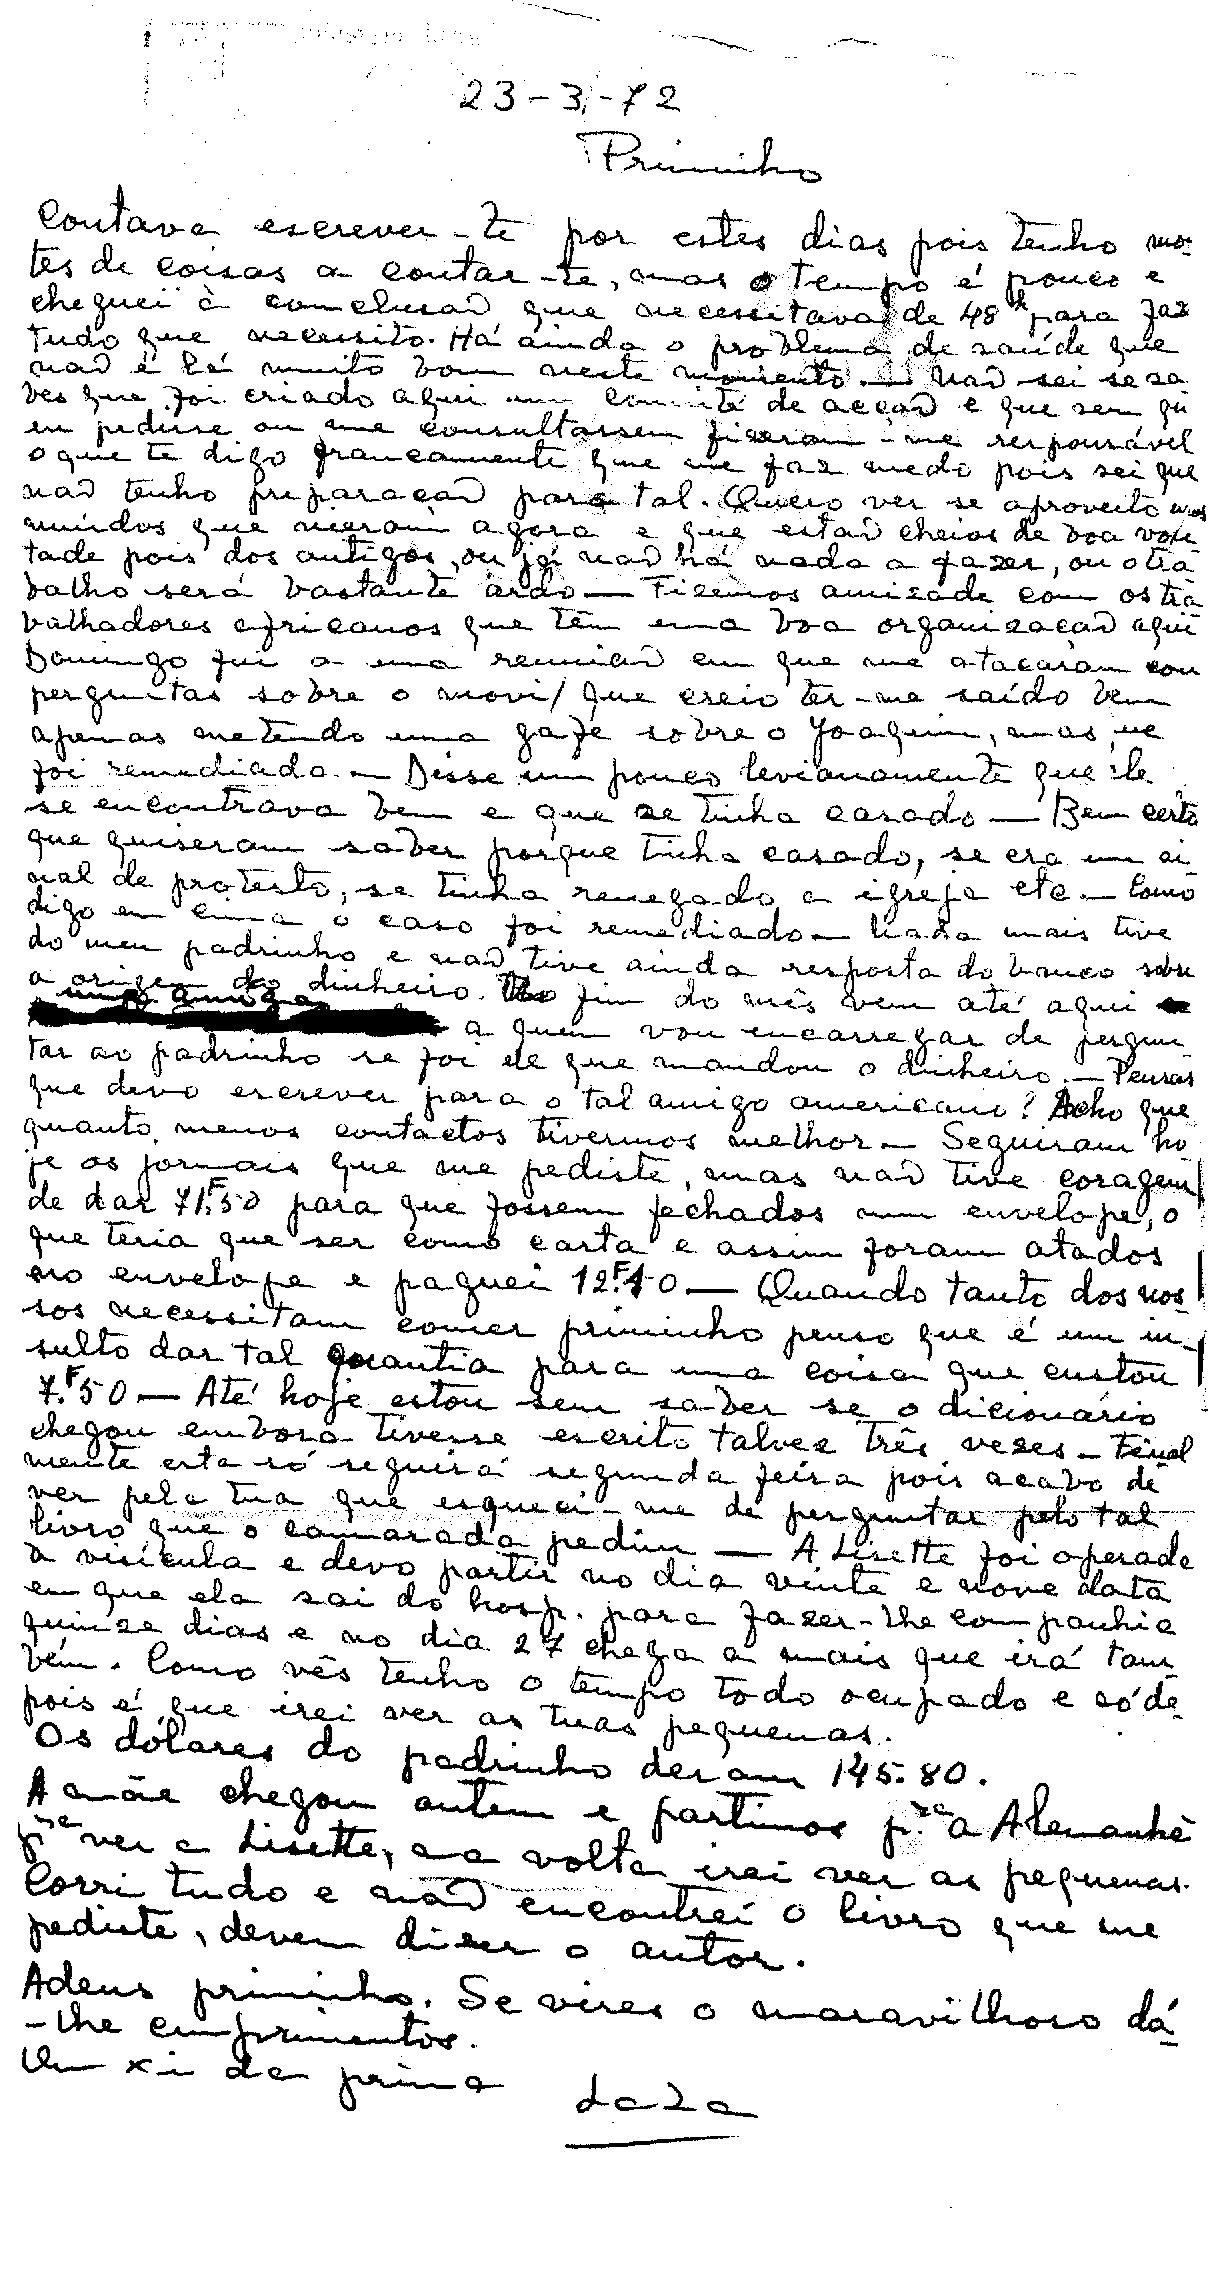 23-3-72
Priminho
Contava escrever-te por estes dias pois tenho mon
tes de coisas a contar-te, mas o tempo é pouco e
cheguei à conclusão que necessitava de 48h para faz
tudo que necessito. Há ainda o problema de saúde que
não é lá muito bom neste momento.— Não sei se sa
bes que foi criado aqui um comité de acção e que sem qu
eu pedisse ou me consultassem fizeram-me responsável
o que te digo francamente que me faz medo pois sei que
não tenho preparação para tal. Quero ver se aproveito uns
miúdos que vieram agora e que estão cheios de boa von
tade pois dos antigos, ou já não há nada a fazer, ou o tra
balho será bastante árdo— Fizemos amizade com os tra
balhadores africanos que têm uma boa organização aqui
Domingo fui a uma reunião em que me atacaram com
perguntas sobre o movi/ que creio ter-me saído bem
apenas metendo uma gafe sobre o Joaquim, mas que
foi remediado.— Disse um pouco levianamente que ele
se encontrava bem e que se tinha casado— Bem certo
que quiseram saber porque tinha casado, se era um si
nal de protesto, se tinha renegado a igreja etc.— Como
digo em cima o caso foi remediado— Nada mais tive
do meu padrinho e não tive ainda resposta do banco sobre
a origem do dinheiro. No fim do mês vem até aqui
uma amiga a quem vou encarregar de pergun
tar ao padrinho se foi ele que mandou o dinheiro.— Pensas
que devo escrever para o tal amigo americano? Acho que
quanto menos contactos tivermos melhor— Seguiram ho
je os jornais que me pediste, mas não tive coragem
de dar 71F.50 para que fossem fechados num envelope, o
que teria que ser como carta e assim foram atados
no envelope e paguei 12F.10— Quando tanto dos nos
sos necessitam comer priminho penso que é um in-
sulto dar tal quantia para uma coisa que custou
7.F50— Até hoje estou sem saber se o dicionário
chegou embora tivesse escrito talvez três vezes— Final
mente esta só seguirá segunda feira pois acabo de
ver pela tua que esqueci-me de perguntar pelo tal
livro que o camarada pediu— A Lisette foi operada
à visícula e devo partir no dia vinte e nove data
em que ela sai do hosp. para fazer-lhe companhia
quinze dias e no dia 27 chega a mais que irá tam
bém. Como vês tenho o tempo todo ocupado e só de-
pois é que irei ver as tuas pequenas.
Os dólares do padrinho deram 145.80.
A mãe chegou ontem e partimos p.ra a Alemanhã
p.ra ver a Lisette, na volta irei ver as pequenas.
Corri tudo e não encontrei o livro que me
pediste, devem dizer o autor.
Adeus priminho. Se vires o maravilhoso dá
-lhe cumprimentos.
Um xi da prima Zaza